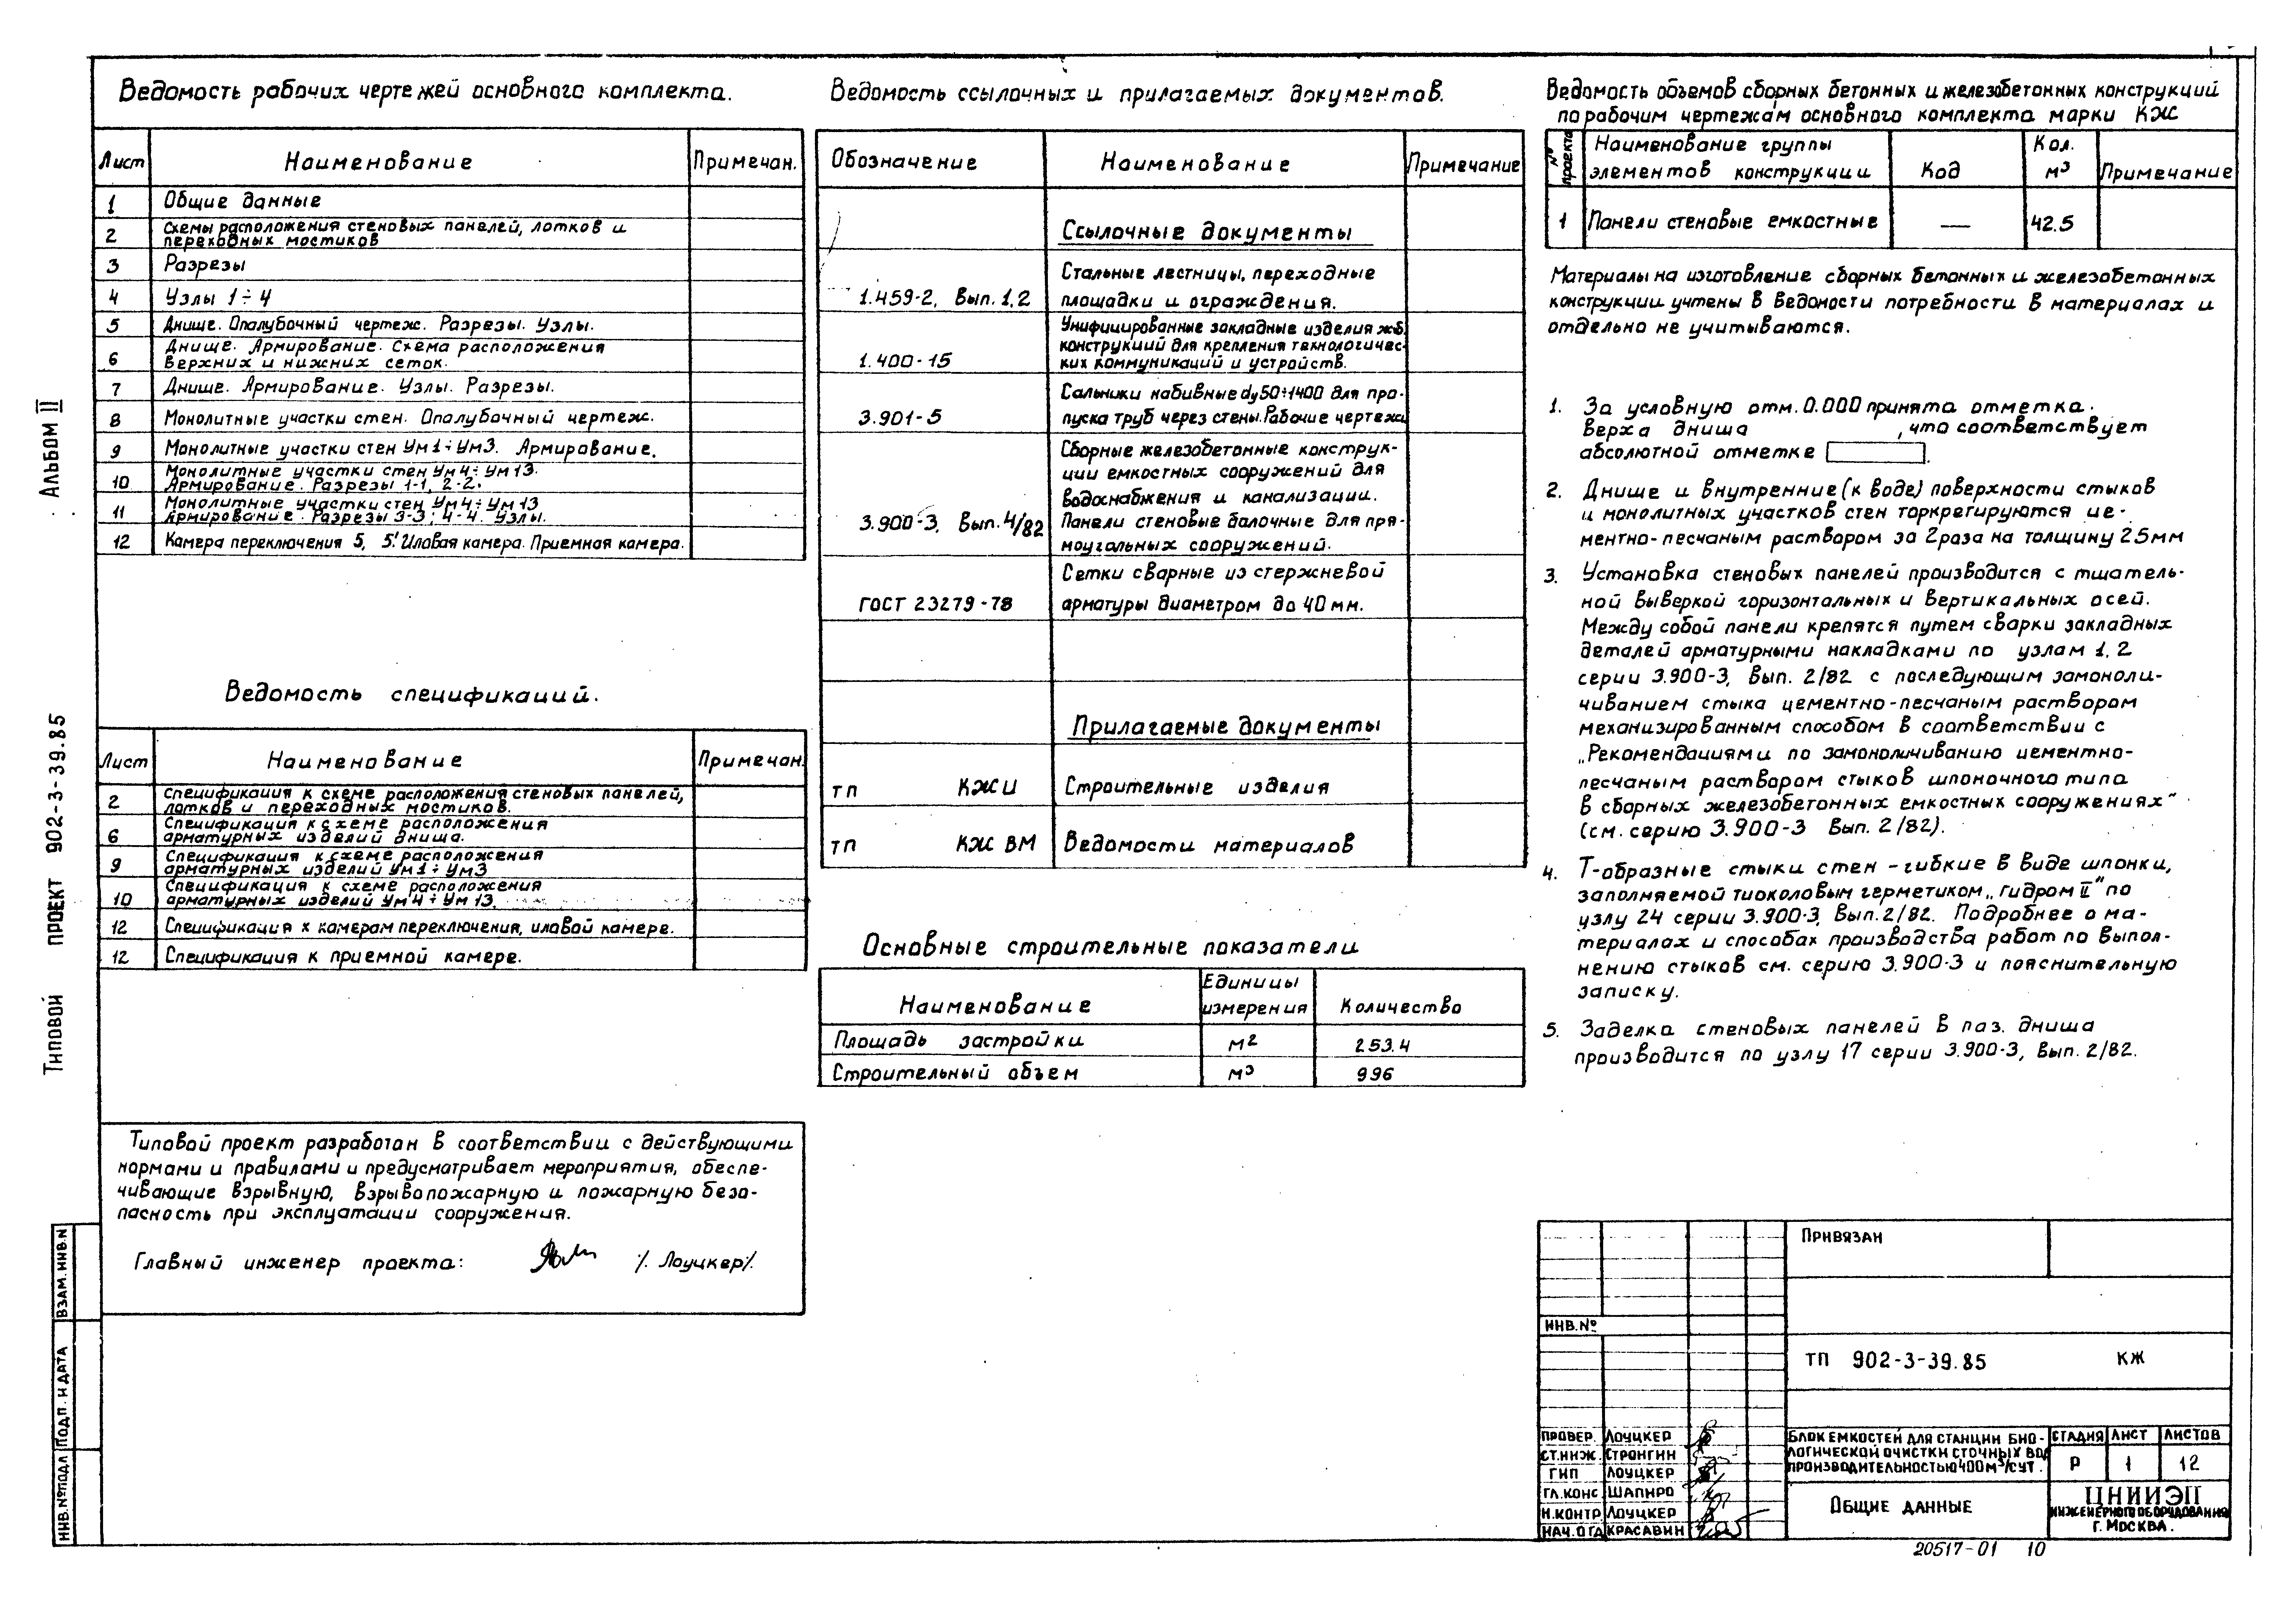 Альбом II
Типовой проект 902-3-39.85
Ведомость рабочих чертежей основного комплекта.
Лист Наименование Примечан.
1 Общие данные
2 Схемы расположения стеновых панелей, лотков и
переходных мостиков
3 Разрезы
4 Узлы 1÷4
5 Днище. Опалубочный чертеж. Разрезы. Узлы.
6 Днище. Армирование. Схема расположения
верхних и нижних сеток.
7 Днище. Армирование. Узлы. Разрезы.
8 Монолитные участки стен. Опалубочный чертеж.
9 Монолитные участки стен Ум1÷Ум3. Армирование.
10 Монолитные участки стен Ум4÷Ум13.
Армирование. Разрезы 1-1, 2-2.
11 Монолитные участки стен Ум4÷Ум13
Армирование. Разрезы 3-3; 4-4. Узлы.
12 Камера переключения 5, 5' Иловая камера. Приемная камера.
Ведомость спецификаций.
Лист Наименование Примечан.
2 Спецификация к схеме расположения стеновых панелей,
лотков и переходных мостиков.
6 Спецификация к схеме расположения
арматурных изделий днища.
9 Спецификация к схеме расположения
арматурных изделий Ум1÷Ум3
10 Спецификация к схеме расположения
арматурных изделий Ум4÷Ум13.
12 Спецификация к камерам переключения, иловой камере.
12 Спецификация к приемной камере.
Типовой проект разработан в соответствии с действующими
нормами и правилами и предусматривает мероприятия, обеспе-
чивающие взрывную, взрывопожарную и пожарную безо-
пасность при эксплуатации сооружения.
Главный инженер проекта: /. Лоуцкер/.
Ведомость ссылочных и прилагаемых документов.
Обозначение Наименование Примечание
Ссылочные документы
Стальные лестницы, переходные
1.459-2, Вып. 1, 2 площадки и ограждения.
Унифицированные закладные изделия жб.
конструкций для крепления технологичес-
1.400-15 ких коммуникаций и устройств.
Сальники набивные dу50÷1400 для про-
3.901-5 пуска труб через стены. Рабочие чертежи
Сборные железобетонные конструк-
ции емкостных сооружений для
водоснабжения и канализации.
3.900-3, Вып. 4/82 Панели стеновые балочные для пря-
моугольных сооружений.
Сетки сварные из стержневой
ГОСТ 23279-78 арматуры диаметром до 40 мм.
Прилагаемые документы
ТП КЖИ Строительные изделия
ТП КЖ ВМ Ведомости материалов
Основные строительные показатели
Наименование Единицы измерения Количество
Площадь застройки м2 253.4
Строительный объем м3 996
Ведомость объемов сборных бетонных и железобетонных конструкций
по рабочим чертежам основного комплекта марки КЖ
№ проекта Наименование группы элементов конструкции Код Кол. м3 Примечание
1 Панели стеновые емкостные — 42.5
Материалы на изготовление сборных бетонных и железобетонных
конструкции учтены в ведомости потребности в материалах и
отдельно не учитываются.
1. За условную отм. 0.000 принята отметка
верха днища , что соответствует
абсолютной отметке .
2. Днище и внутренние (к воде) поверхности стыков
и монолитных участков стен торкретируются це-
ментно-песчаным раствором за 2 раза на толщину 25мм
3. Установка стеновых панелей производится с тщатель-
ной выверкой горизонтальных и вертикальных осей.
Между собой панели крепятся путем сварки закладных
деталей арматурными накладками по узлам 1, 2
серии 3.900-3, Вып. 2/82 с последующим замоноли-
чиванием стыка цементно-песчаным раствором
механизированным способом в соответствии с
„Рекомендациями по замоноличиванию цементно-
песчаным раствором стыков шпоночного типа
в сборных железобетонных емкостных сооружениях"
(см. серию 3.900-3 Вып. 2/82).
4. Т-образные стыки стен - гибкие в виде шпонки,
заполняемой тиоколовым герметиком „Гидром II" по
узлу 24 серии 3.900-3, Вып. 2/82. Подробнее о ма-
териалах и способах производства работ по выпол-
нению стыков см. серию 3.900-3 и пояснительную
записку.
5. Заделка стеновых панелей в паз. днища
производится по узлу 17 серии 3.900-3, Вып. 2/82.
Привязан
Инв.№
ТП 902-3-39.85 КЖ
Провер. Лоуцкер
Ст.инж. Стронгин
ГИП Лоуцкер
Гл.конс. Шапиро
Н.контр Лоуцкер
Нач.отд Красавин
Блок емкостей для станции био-
логической очистки сточных вод
производительностью 400м3/сут.
Стадия Лист Листов
Р 1 12
Общие данные
ЦНИИЭП
инженерного оборудования
г. Москва.
Взам. инв.№
Подп. и дата
Инв.№подл
20517-01 10